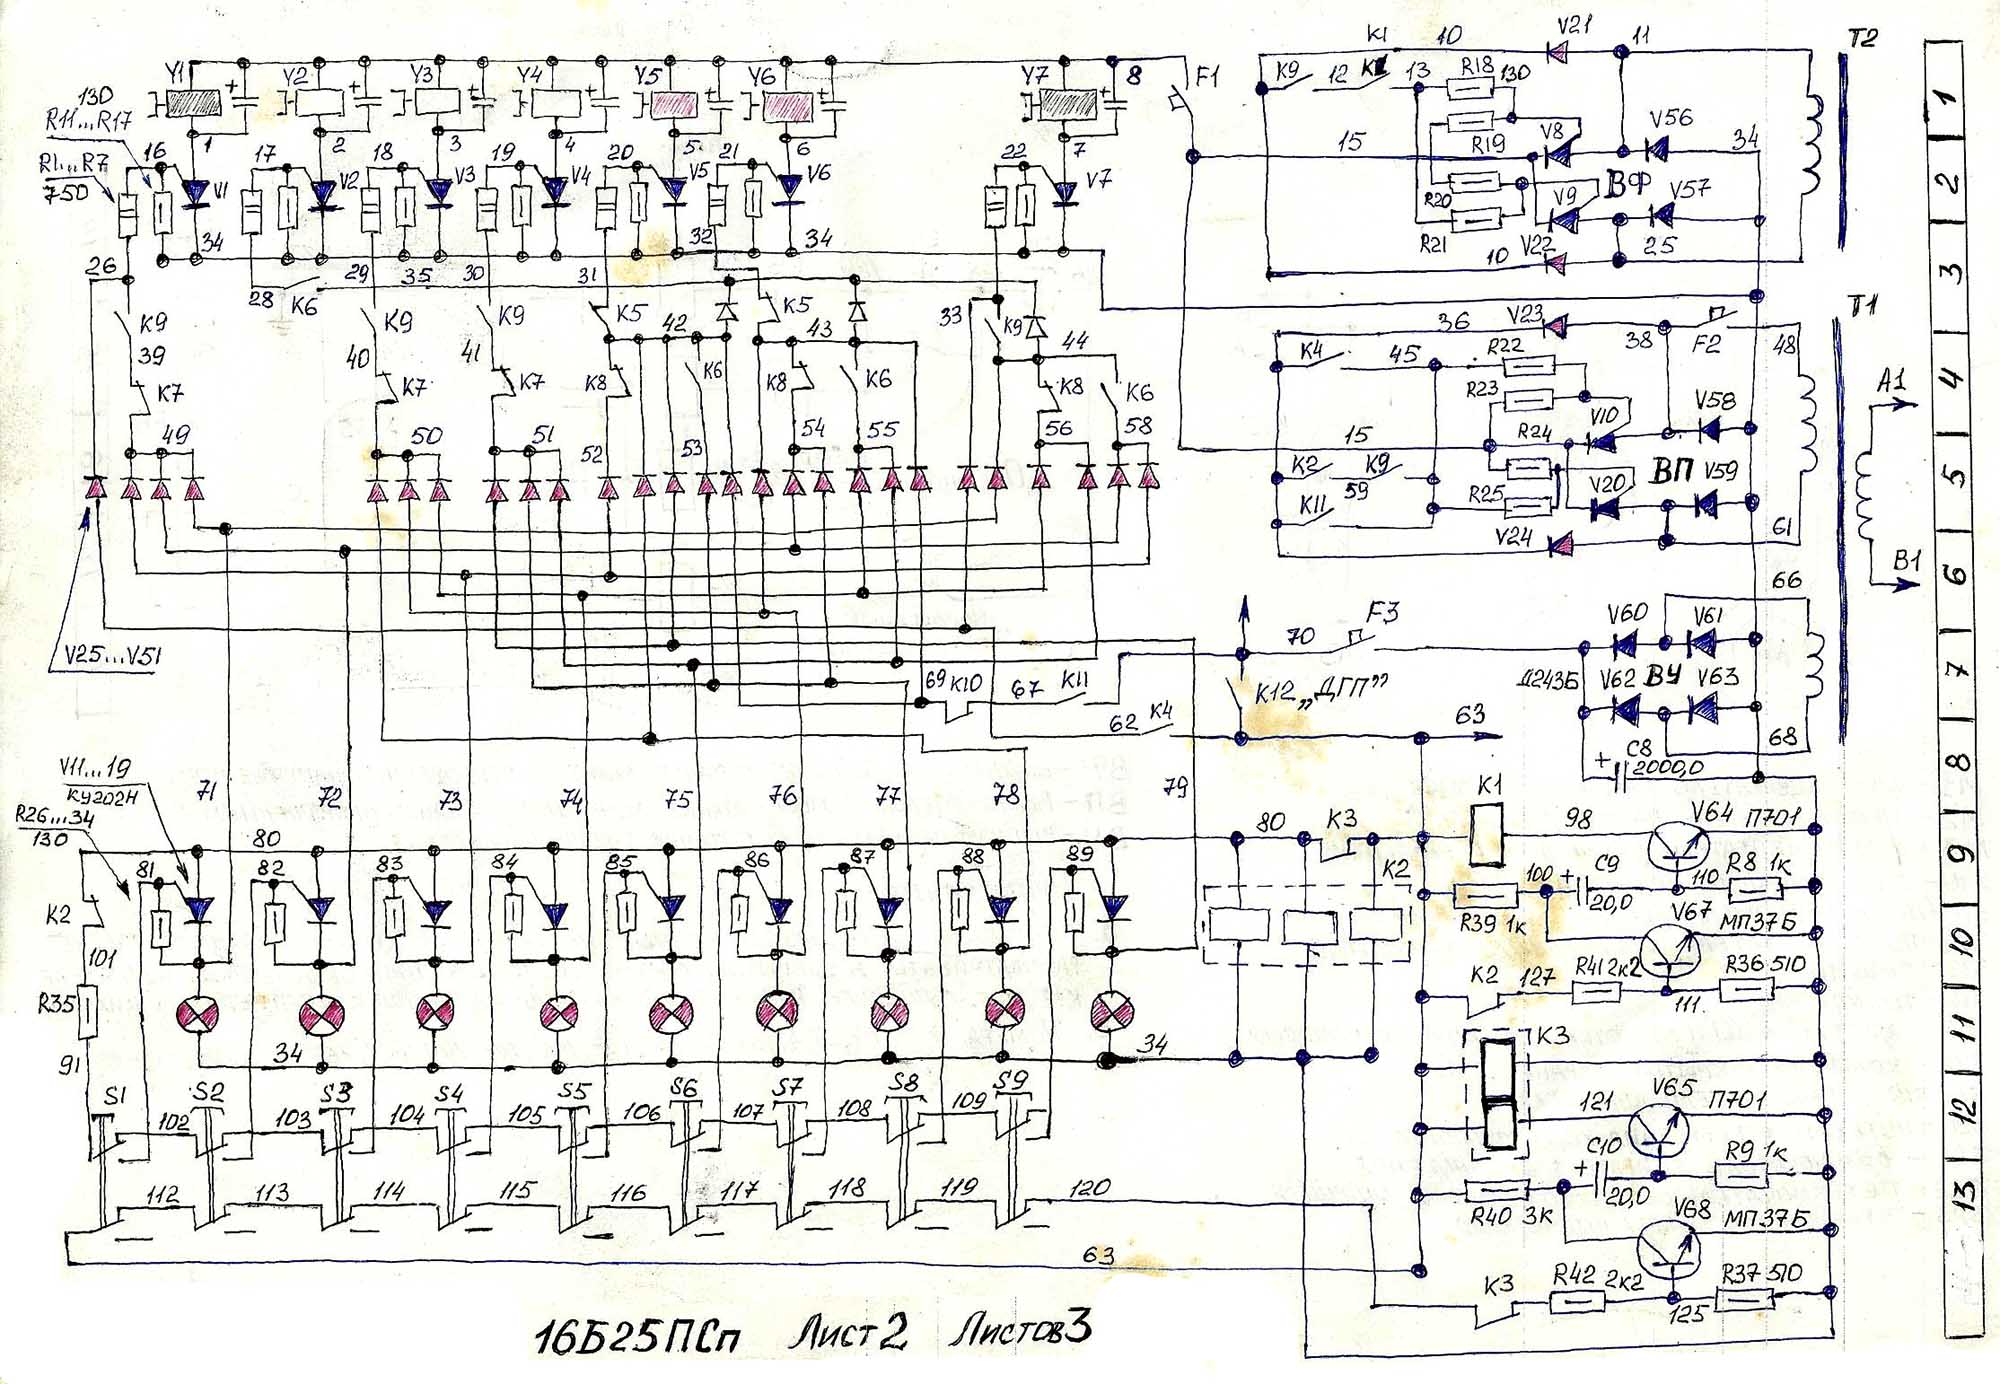 Y1 Y2 Y3 Y4 Y5 Y6 Y7
+ + + + + + +
8 F1
130
R11...R17
R1...R7
750
1 2 3 4 5 6 7
16 17 18 19 20 21 22
V1 V2 V3 V4 V5 V6 V7
34 32 34
26 28 29 35 30 31
K6
K9 K9 K9 K5 42 K5 43 33 K9 44
39 40 41
K7 K7 K7 K8 K6 K8 K6 K8 K6
49 50 51 52 53 54 55 56 58
V25...V51
69 K10 67 K11
62 K4
K12 „ДГП”
70 F3
63
K1 10 V21 11 T2
K9 12 K1 13 R18 130
R19 V8 V56
15 34
R20 V9 ВФ V57
R21 V22 25
10
T1
36 V23 38 F2 48
K4 45 R22
R23 V10 V58
15 R24
K2 K9 ВП V59
59 R25 V20
K11
V24 61
A1
B1
66
V60 V61
Д243Б V62 ВУ V63
68
+ C8
2000,0
V11...19
КУ202Н
R26...34
130
71 72 73 74 75 76 77 78 79
80 80 K3
81 82 83 84 85 86 87 88 89
K2
101
R35
91
K2
34 34
K1 98 V64 П701
100 + C9 110 R8 1к
R39 1к 20,0 V67 МП37Б
K2 127 R41 2к2 R36 510
111
K3
121 V65 П701
C10 R9 1к
+ 20,0
R40 3К V68 МП37Б
K3 R42 2к2 R37 510
125
S1 S2 S3 S4 S5 S6 S7 S8 S9
102 103 104 105 106 107 108 109
112 113 114 115 116 117 118 119 120
63
16Б25ПСп Лист 2 Листов 3
1
2
3
4
5
6
7
8
9
10
11
12
13